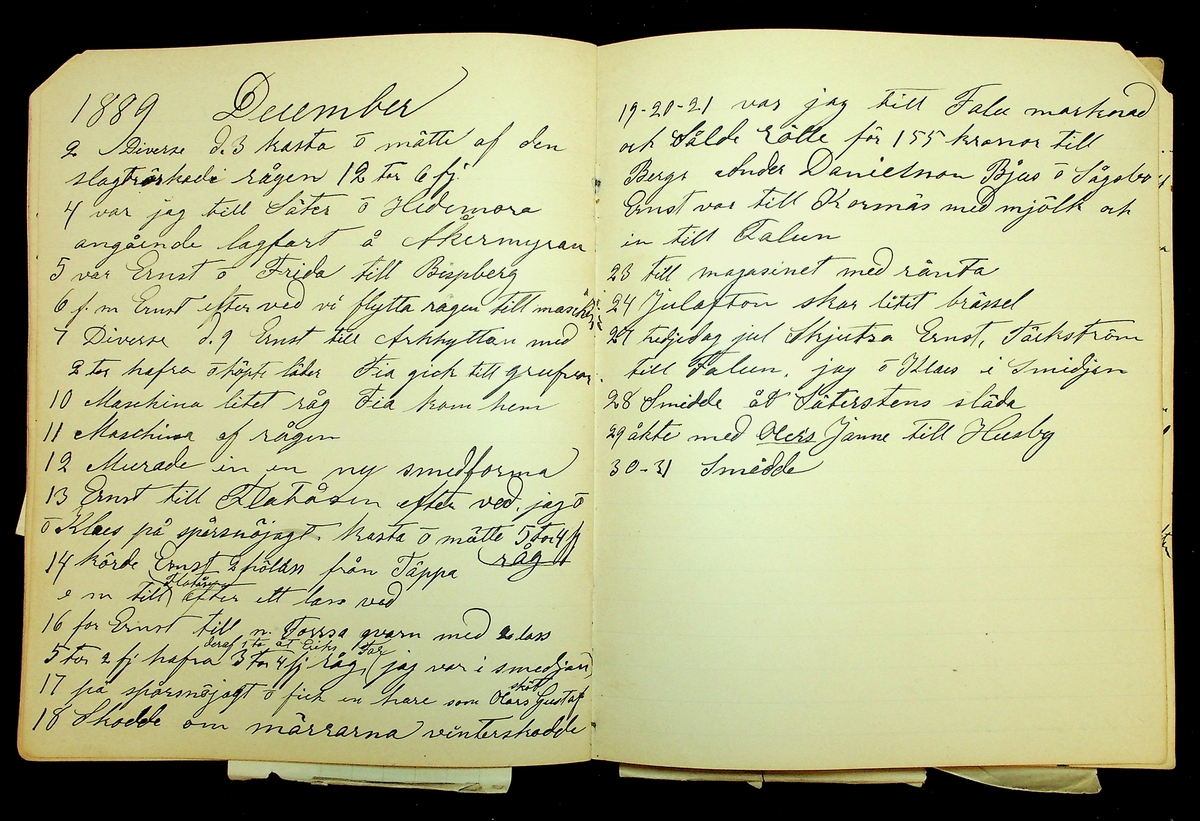 1889 December
2 Diverse d. 3 kasta ō mätte af den
slagtröskade rågen 12 tor 6 fj.
4 var jag till Säter ō Hedemora
angående lagfart å Åkermyran
5 var Ernst ō Frida till Bispberg
6 f. m Ernst efter ved vi flytta rågen till
7 Diverse d. 9 Ernst till Arkhyttan med
2 tor hafra ō köpt läder Fia gick till grufvan
10 Maschina litet råg Fia kom hem
11 Maschina af rågen
12 Murade in en ny smedforma
13 Ernst till Flatåsen efter ved. jag ō
ō Klaes på spårsnöjagt. kasta ō mätte 5 tor 4 fj
råg
14 körde Ernst 2 hölass från Täppa
e m till Flatåsen efter ett lass ved
16 for Ernst till n. Torsa qvarn med 2 lass
deraf 1 to åt Eriks Far
5 tor 2 fj hafra 3 tor 4 fj råg, (jag var i smedjan)
17 på spårsnöjagt ō fick en hare som Olars Gustaf
sköt
18 Skodde om märrarna vinterskodde
19-20-21 var jag till Falu marknad
och Sålde Lötte för 155 kronor till
Bergs Ander Danielson Bjus ō Sågsbo
Ernst var till Korsnäs med mjölk och
in till Falun
23 till magasinet med ränta
24 Julafton skar litet brässel
27 tredjedag jul Skjutsa Ernst, Täckström
till Falun, jag ō Klaes i Smidjan
28 Smidde åt Säterstens släda
29 åkte med Olers Janne till Husby
30-31 Smidde